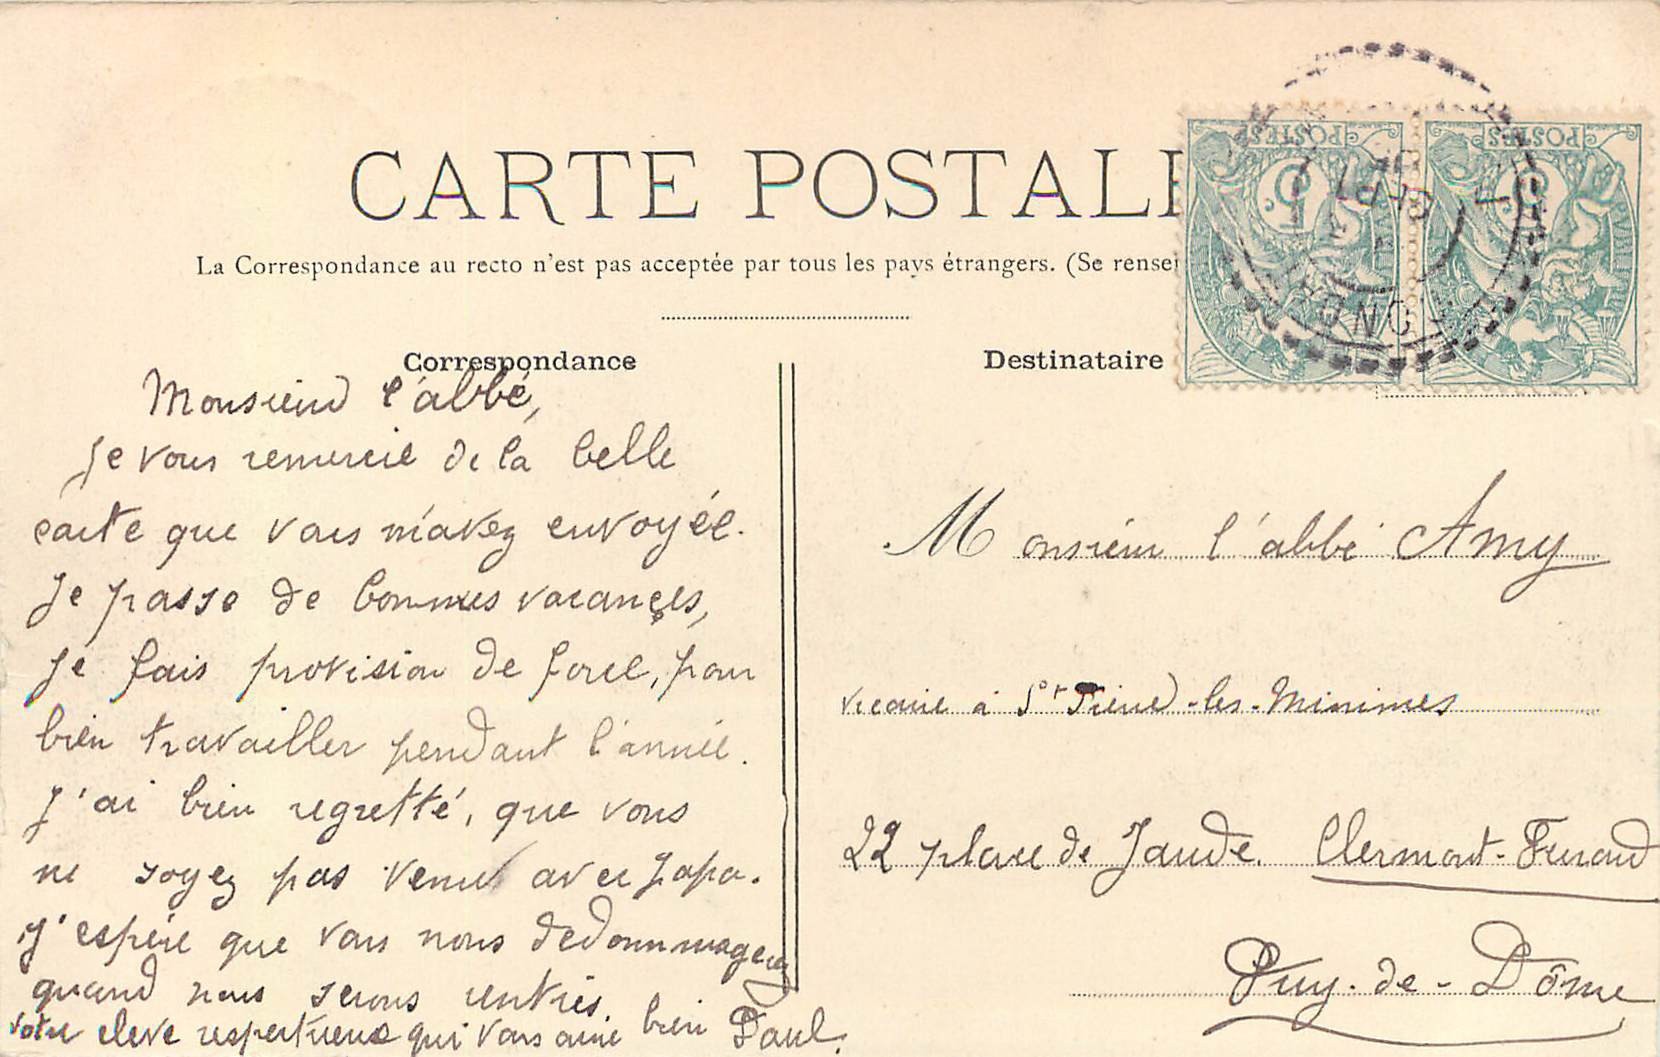 CARTE POSTALE
La Correspondance au recto n'est pas acceptée par tous les pays étrangers. (Se rensei
Correspondance
Monsieur l'abbé,
Je vous remercie de la belle
carte que vous m'avez envoyée.
Je passe de bonnes vacances,
Je fais provision de force, pour
bien travailler pendant l'année.
J'ai bien regretté, que vous
ne soyez pas venu avec papa.
J'espère que vous nous dedommagerez
quand nous serons rentrés
votre eleve respectueux qui vous aime bien Paul.
Destinataire
POSTES
5c
POSTES
5c
Monsieur l'abbé Amy
vicaire à St Pierre-les-Minimes
22 place de Jaude. Clermont-Ferrand
Puy-de-Dôme